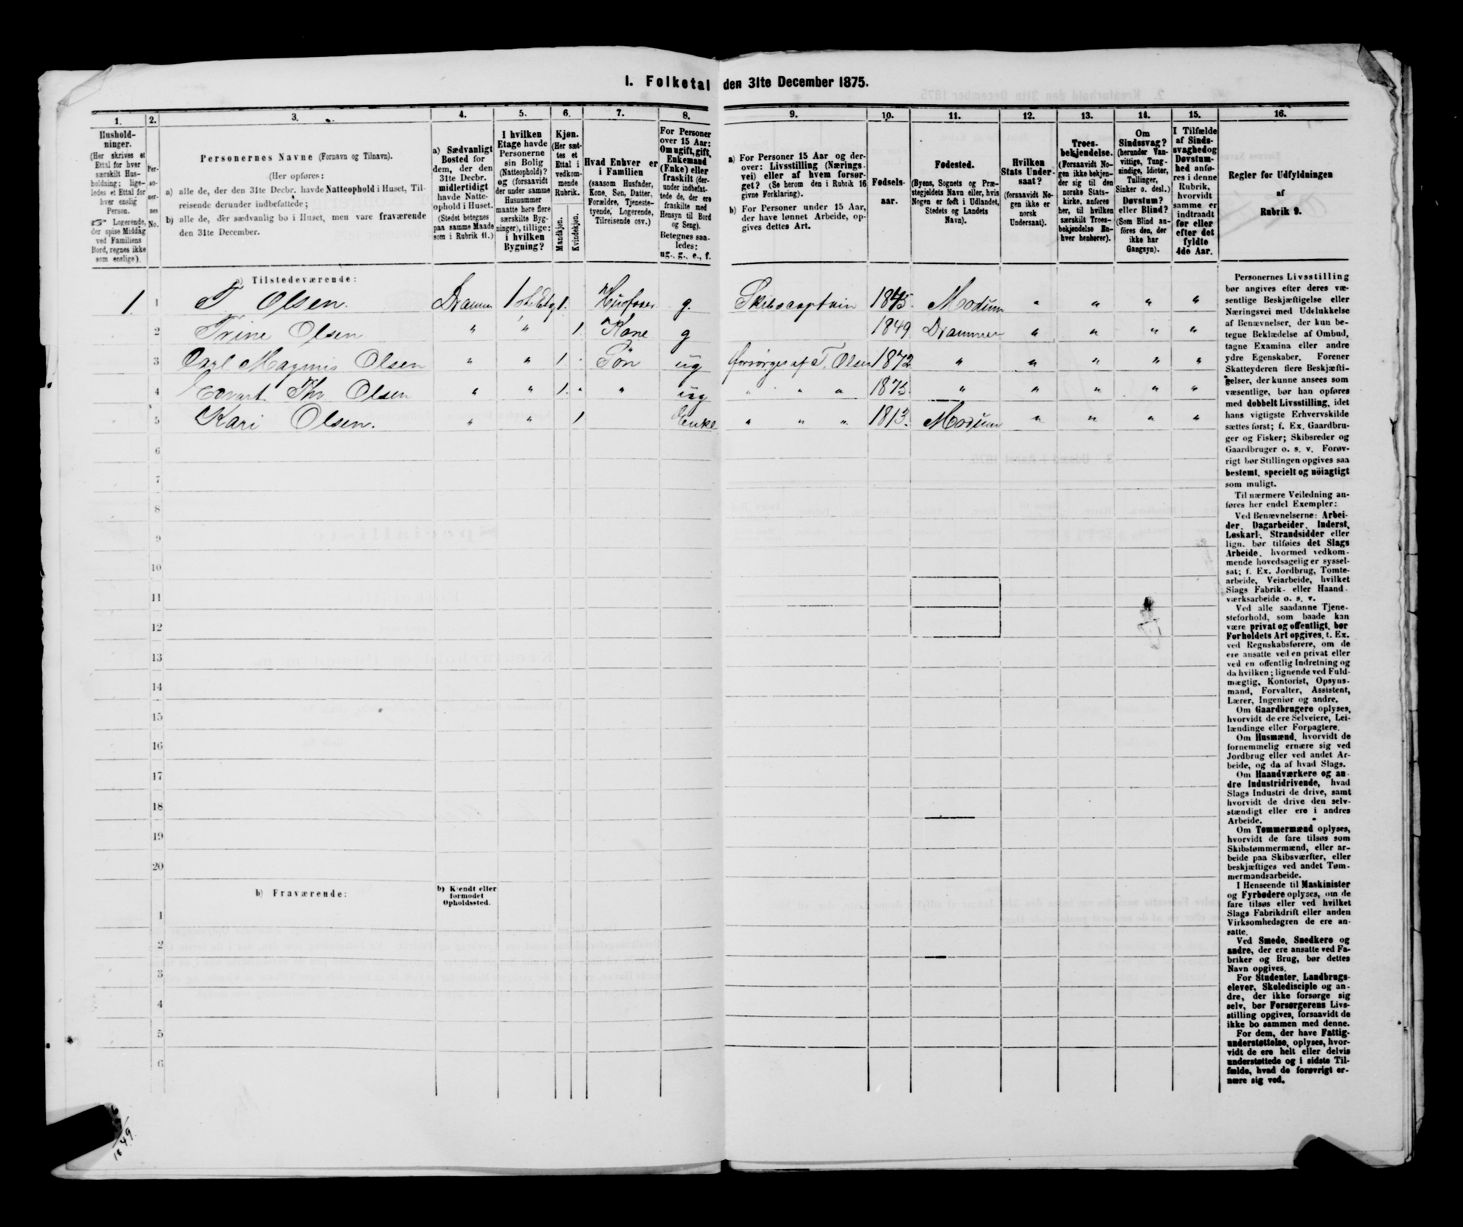 I. Folketal den 31te December 1875.
1. 2. 3. 4. 5. 6. 7. 8. 9. 10. 11. 12. 13. 14. 15. 16.
Hushold-
ninger.
(Her skrives et
Ettal for hver
særskilt Hus-
holdning; lige-
ledes et Ettal for
hver enslig
Person.
Logerende,
der spise Middag
ved Familiens
Bord, regnes ikke
som enslige).
Per-
so-
ner-
nes
No.
Personernes Navne (Fornavn og Tilnavn).
(Her opføres:
a) alle de, der den 31te Decbr. havde Natteophold i Huset, Til-
reisende derunder indbefattede;
b) alle de, der sædvanlig bo i Huset, men vare fraværende
den 31te December.
a) Sædvanligt
Bosted for
dem, der den
31te Decbr.
midlertidigt
havde Natte-
ophold i Huset.
(Stedet betegnes
paa samme Maade
som i Rubrik 11.)
I hvilken
Etage havde
Personerne
sin Bolig
(Natteophold)?
og (forsaavidt
der under samme
Husnummer
maatte høre flere
særskilte Byg-
ninger), tillige:
i hvilken
Bygning?
Kjøn.
(Her sæt-
tes et
Ettal i
vedkom-
mende
Rubrik.
Mandkjøn.
Kvindekjøn.
Hvad Enhver er
i Familien
(saasom Husfader,
Kone, Søn, Datter,
Forældre, Tjeneste-
tyende, Logerende,
Tilreisende osv.)
For Personer
over 15 Aar:
Om ugift, gift,
Enkemand
(Enke) eller
fraskilt (der-
under indbefat-
tede de, der ere
fraskilte med
Hensyn til Bord
og Seng).
Betegnes saa-
ledes:
ug., g., e., f.
a) For Personer 15 Aar og der-
over: Livsstilling (Nærings-
vei) eller af hvem forsør-
get? (Se herom den i Rubrik 16
givne Forklaring).
b) For Personer under 15 Aar,
der have lønnet Arbeide, op-
gives dettes Art.
Fødsels-
aar.
Fødested.
(Byens, Sognets og Præ-
stegjeldets Navn eller, hvis
Nogen er født i Udlandet,
Stedets og Landets
Navn).
Hvilken
Stats Under-
saat?
(forsaavidt No-
gen ikke er
norsk
Undersaat).
Troes-
bekjendelse.
(Forsaavidt No-
gen ikke bekjen-
der sig til den
norske Stats-
kirke, anføres
her, til hvilken
særskilt Troes-
bekjendelse En-
hver henhører).
Om
Sindssvag?
(herunder Van-
vittige, Tung-
sindige, Idioter,
Tullinger,
Sinker o. desl.)
Døvstum?
eller Blind?
(Som Blind an-
føres den, der
ikke har
Gangsyn).
I Tilfælde
af Sinds-
svaghed og
Døvstum-
hed anfø-
res i denne
Rubrik,
hvorvidt
samme er
indtraadt
før eller
efter det
fyldte
4de Aar.
Regler for Udfyldningen
af
Rubrik 9.
a) Tilstedeværende:
1 1 T Olsen. Drammen 1st Etg 1. Husfader g. Skibscaptein 1845. Modum " " " "
2 Trine Olsen " " 1 Kone g 1849 Drammen " " " "
3 Carl Magnus Olsen " " 1 Søn ug forsørges af T. Olsen 1872 " " " " "
4 Edvart Thr Olsen " " 1. " ug " " " 1875. " " " " "
5 Kari Olsen. " " 1 Enke " " " 1813. Modum " " " "
6
7
8
9
10
11
12
13
14
15
16
17
18
19
20
b) Fraværende:
b) Kjendt eller
formodet
Opholdssted.
1
2
3
4
5
6
Personernes Livsstilling
bør angives efter deres væ-
sentlige Beskjæftigelse eller
Næringsvei med Udelukkelse
af Benævnelser, der kun be-
tegne Beklædelse af Ombud,
tagne Examina eller andre
ydre Egenskaber. Forener
Skatteyderen flere Beskjæfti-
gelser, der kunne ansees som
væsentlige, bør han opføres
med dobbelt Livsstilling, idet
hans vigtigste Erhvervskilde
sættes først; f. Ex. Gaardbru-
ger og Fisker; Skibsreder og
Gaardbruger o. s. v. Forøv-
rigt bør Stillingen opgives saa
bestemt, specielt og nøiagtigt
som muligt.
Til nærmere Veiledning an-
føres her endel Exempler:
Ved Benævnelserne: Arbei-
der, Dagarbeider, Inderst,
Løskarl, Strandsidder eller
lign. bør tilføies det Slags
Arbeide, hvormed vedkom-
mende hovedsagelig er syssel-
sat; f. Ex. Jordbrug, Tomte-
arbeide, Veiarbeide, hvilket
Slags Fabrik- eller Haand-
værksarbeide o. s. v.
Ved alle saadanne Tjene-
steforhold, som baade kan
være privat og offentligt, bør
Forholdets Art opgives, f. Ex.
ved Regnskabsførere, om de
ere ansatte ved en privat eller
ved en offentlig Indretning og
da hvilken; lignende ved Fuld-
mægtig, Kontorist, Opsyns-
mand, Forvalter, Assistent,
Lærer, Ingeniør og andre.
Om Gaardbrugere oplyses,
hvorvidt de ere Selveiere, Lei-
lændinge eller Forpagtere.
Om Husmænd, hvorvidt de
fornemmelig ernære sig ved
Jordbrug eller ved andet Ar-
beide, og da af hvad Slags.
Om Haandværkere og an-
dre Industridrivende, hvad
Slags Industri de drive, samt
hvorvidt de drive den selv-
stændigt eller ere i andres
Arbeide.
Om Tømmermænd oplyses,
hvorvidt de fare tilsøs som
Skibstømmermænd, eller ar-
beide paa Skibsværfter, eller
beskjæftiges ved andet Tøm-
mermandsarbeide.
I Henseende til Maskinister
og Fyrbødere oplyses, om de
fare tilsøs eller ved hvilket
Slags Fabrikdrift eller anden
Virksomhedsgren de ere an-
satte.
Ved Smede, Snedkere og
andre, der ere ansatte ved Fa-
briker og Brug, bør dettes
Navn opgives.
For Studenter, Landbrugs-
elever, Skoledisciple og an-
dre, der ikke forsørge sig
selv, bør Forsørgerens Livs-
stilling opgives, forsaavidt de
ikke bo sammen med denne.
For dem, der have Fattig-
understøttelse, oplyses, hvor-
vidt de ere helt eller delvis
understøttede og i sidste Til-
fælde, hvad de forøvrigt er-
nære sig ved.